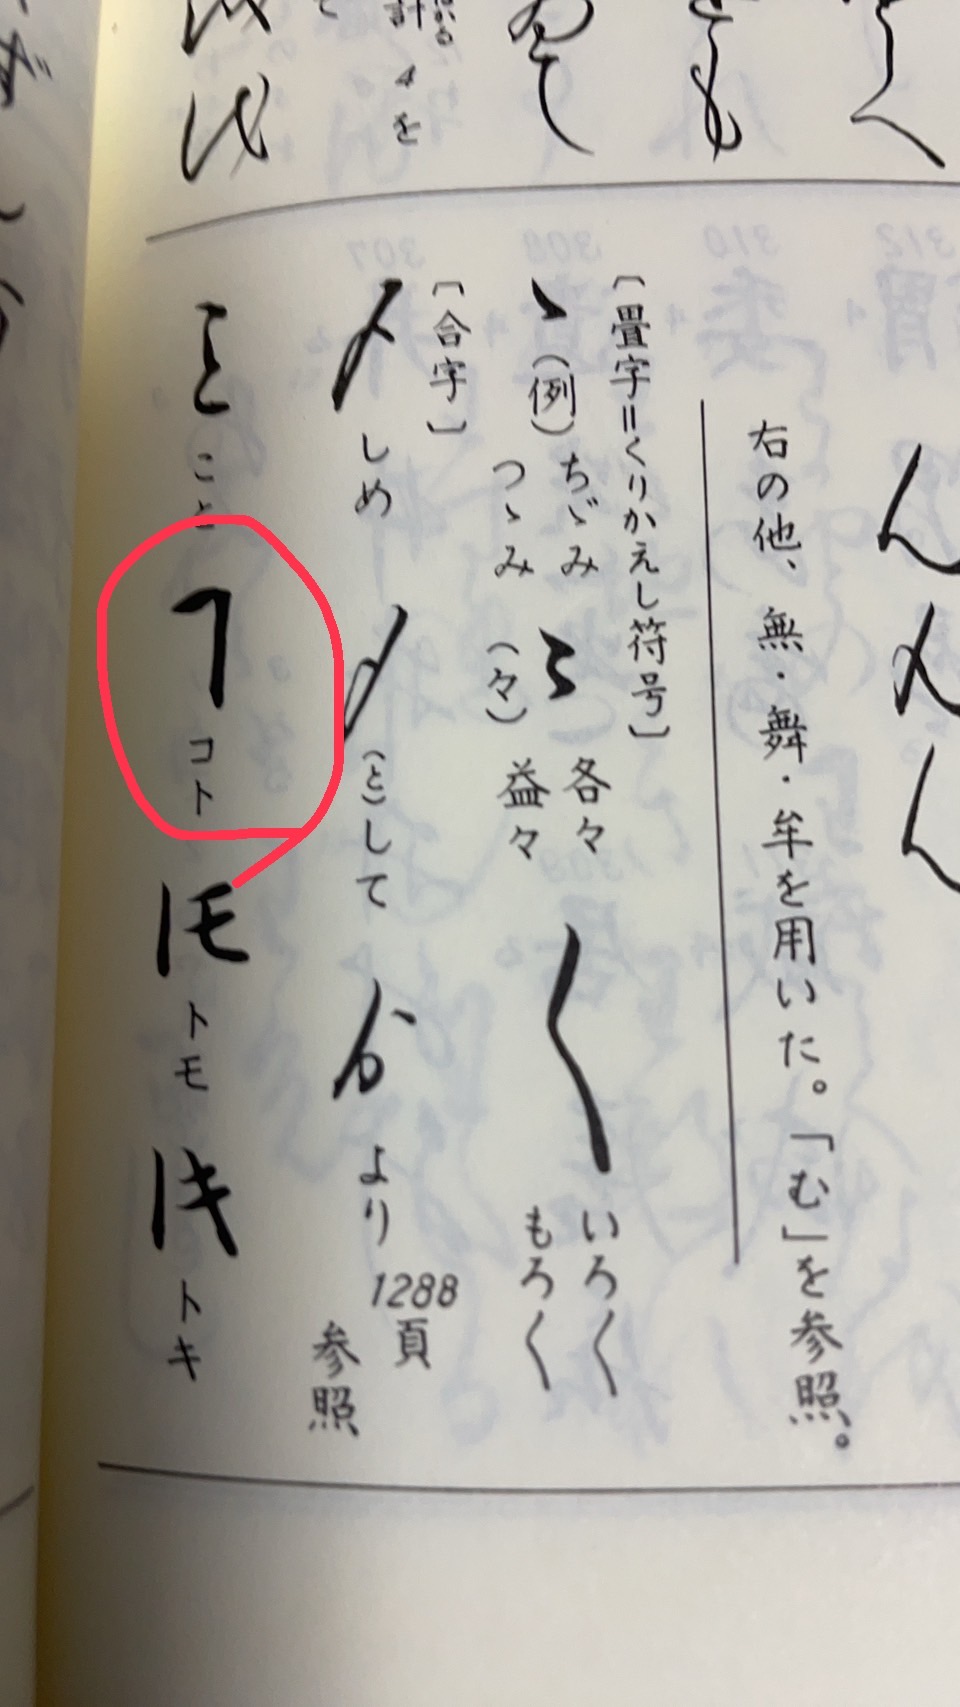 ん
ん
ん
右の他、無・舞・牟を用いた。「む」を参照。
〔畳字=くりかえし符号〕
ヽ(例)ちゞみ
つゝみ
〻(々)各々
益々
〱いろ〱
もろ〱
〔合字〕
〆しめ
〆(と)して
ゟより
1288頁
参照
こと
ヿコト
トモ
トキ